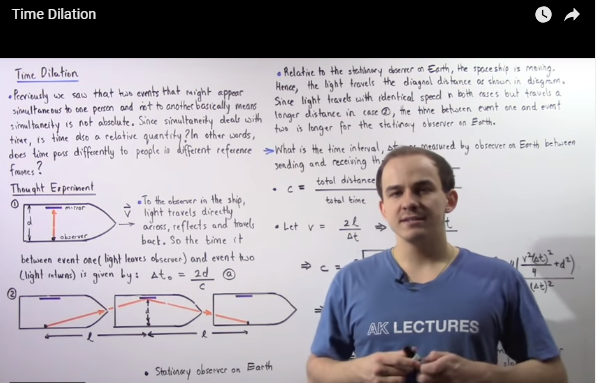 Time Dilation
Time Dilation
• Previously we saw that two events that might appear
simultaneous to one person and not to another basically means
simultaneity is not absolute. Since simultaneity deals with
time, is time also a relative quantity? In other words,
does time pass differently to people in different reference
frames?
Thought Experiment
①
mirror
d
observer
v
• To the observer in the ship,
light travels directly
across, reflects and travels
back. So the time it
between event one (light leaves observer) and event two
(light returns) is given by: Δt₀ = 2d/c ⓐ
②
d
l l
• Stationary observer on Earth
• Relative to the stationary observer on Earth, the spaceship is moving.
Hence, the light travels the diagnol distance as shown in diagram.
Since light travels with identical speed in both cases but travels a
longer distance in case ②, the time between event one and event
two is longer for the stationary observer on Earth.
→ What is the time interval, Δt measured by observer on Earth between
sending and receiving the
• c = total distance / total time
• Let v = 2l/Δt ⇒
⇒ c =
v²(Δt)²/4 + d²
(Δt)²
⇒
AK LECTURES